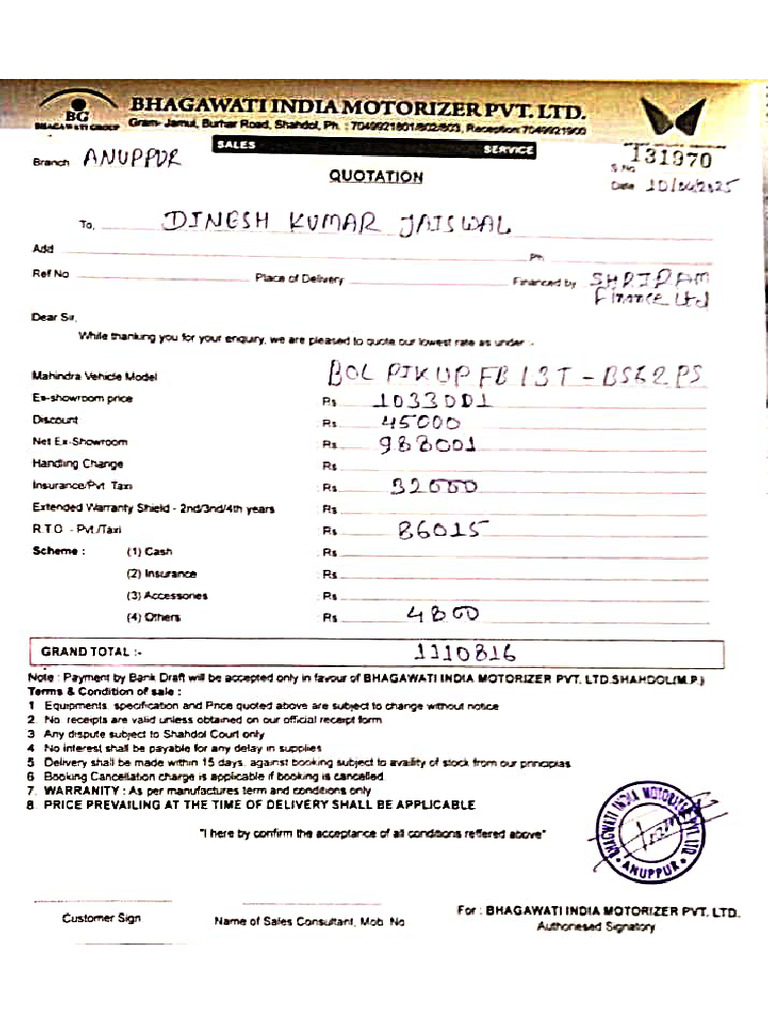 BG
BHAGAWATI GROUP
BHAGAWATI INDIA MOTORIZER PVT. LTD.
Gram- Jamui, Burhar Road, Shahdol, Ph. : 7049921801/802/803, Reception:7049921900
SALES SERVICE
Branch ANUPPUR
131970
S.No
QUOTATION
Date 10/06/2025
To, DINESH KUMAR JAISWAL
Add Ph
Ref No Place of Delivery Financed by SHRIRAM
Finance Ltd
Dear Sir,
While thanking you for your enquiry, we are pleased to quote our lowest rate as under :-
Mahindra Vehicle Model BOL PIKUP FB 1.3T - BS62 PS
Ex-showroom price Rs 1033001
Discount Rs 45000
Net Ex-Showroom Rs 988001
Handling Change Rs
Insurance/Pvt Taxi Rs 32000
Extended Warranty Shield - 2nd/3rd/4th years Rs
R.T.O - Pvt./Taxi Rs 86015
Scheme : (1) Cash Rs
(2) Insurance Rs
(3) Accessories Rs
(4) Others Rs 4800
GRAND TOTAL :- 1110816
Note : Payment by Bank Draft will be accepted only in favour of BHAGAWATI INDIA MOTORIZER PVT. LTD.SHAHDOL(M.P.)
Terms & Condition of sale :
1 Equipments, specification and Price quoted above are subject to change without notice
2. No receipts are valid unless obtained on our official receipt form
3 Any dispute subject to Shahdol Court only
4 No interest shall be payable for any delay in supplies
5 Delivery shall be made within 15 days, against booking subject to availity of stock from our principlas
6 Booking Cancellation charge is applicable if booking is cancelled
7. WARRANTY : As per manufactures term and conditions only
8. PRICE PREVAILING AT THE TIME OF DELIVERY SHALL BE APPLICABLE
"I here by confirm the acceptance of all conditions reffered above"
BHAGWATI INDIA MOTORIZER PVT. LTD.
ANUPPUR
Customer Sign Name of Sales Consultant, Mob. No For : BHAGAWATI INDIA MOTORIZER PVT. LTD.
Authoriesed Signatory